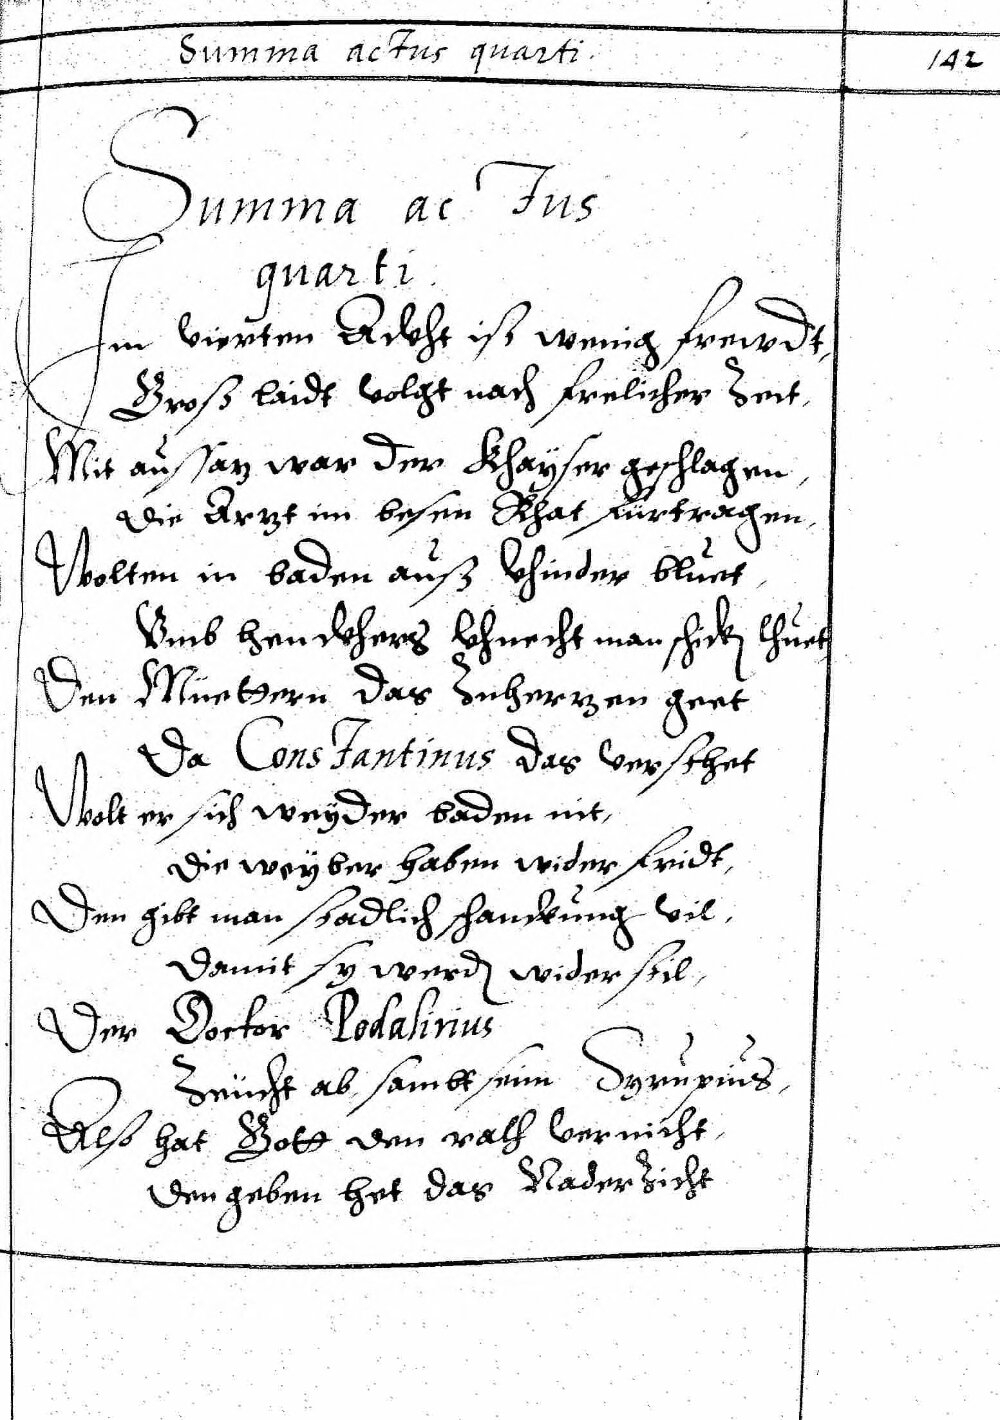 Summa actus quarti.
142
Summa actus
quarti.
Im vierten Ackht ist wenig frewdt,
Groß laidt volgt nach frelicher Zeit,
Mit aussatz war der Khayser geschlagen,
die Arzt im besen Rhat fürtragen,
Wolten in baden auß Khinder bluet,
Vmb henckhers khnecht man schickhen thuet
Den Müettern das Zuherzen geet
Da Constantinus das versthet
Wolt er sich weyder baden nit,
die weyber haben wider fridt,
Den gibt man stadlich schanckung vil,
damit sy werden wider stil,
Der Doctor Podalirius
Zeücht ab sambt seim Syrupius,
Also hat Gott den rath vernicht,
den geben het das Naderzicht